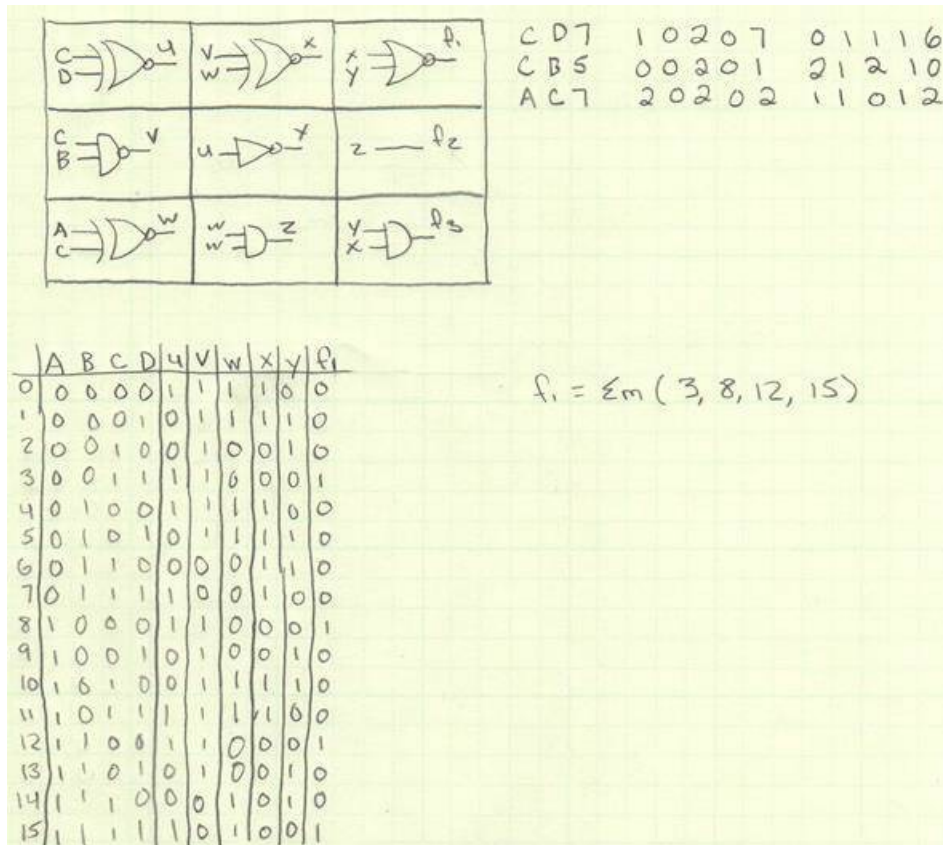 C D u V W X X Y f1
C D 7 1 0 2 0 7 0 1 1 1 6
C B 5 0 0 2 0 1 2 1 2 1 0
A C 7 2 0 2 0 2 1 1 0 1 2
C B V u Y z f2
A C W W W Z Y X f3
A B C D u V W X Y f1
0 0 0 0 0 1 1 1 1 0 0
1 0 0 0 1 0 1 1 1 1 0
2 0 0 1 0 0 1 0 0 1 0
3 0 0 1 1 1 1 0 0 0 1
4 0 1 0 0 1 1 1 1 0 0
5 0 1 0 1 0 1 1 1 1 0
6 0 1 1 0 0 0 0 1 1 0
7 0 1 1 1 1 0 0 1 0 0
8 1 0 0 0 1 1 0 0 0 1
9 1 0 0 1 0 1 0 0 1 0
10 1 0 1 0 0 1 1 1 1 0
11 1 0 1 1 1 1 1 1 0 0
12 1 1 0 0 1 1 0 0 0 1
13 1 1 0 1 0 1 0 0 1 0
14 1 1 1 0 0 0 1 0 1 0
15 1 1 1 1 1 0 1 0 0 1
f1 = Σm ( 3, 8, 12, 15)